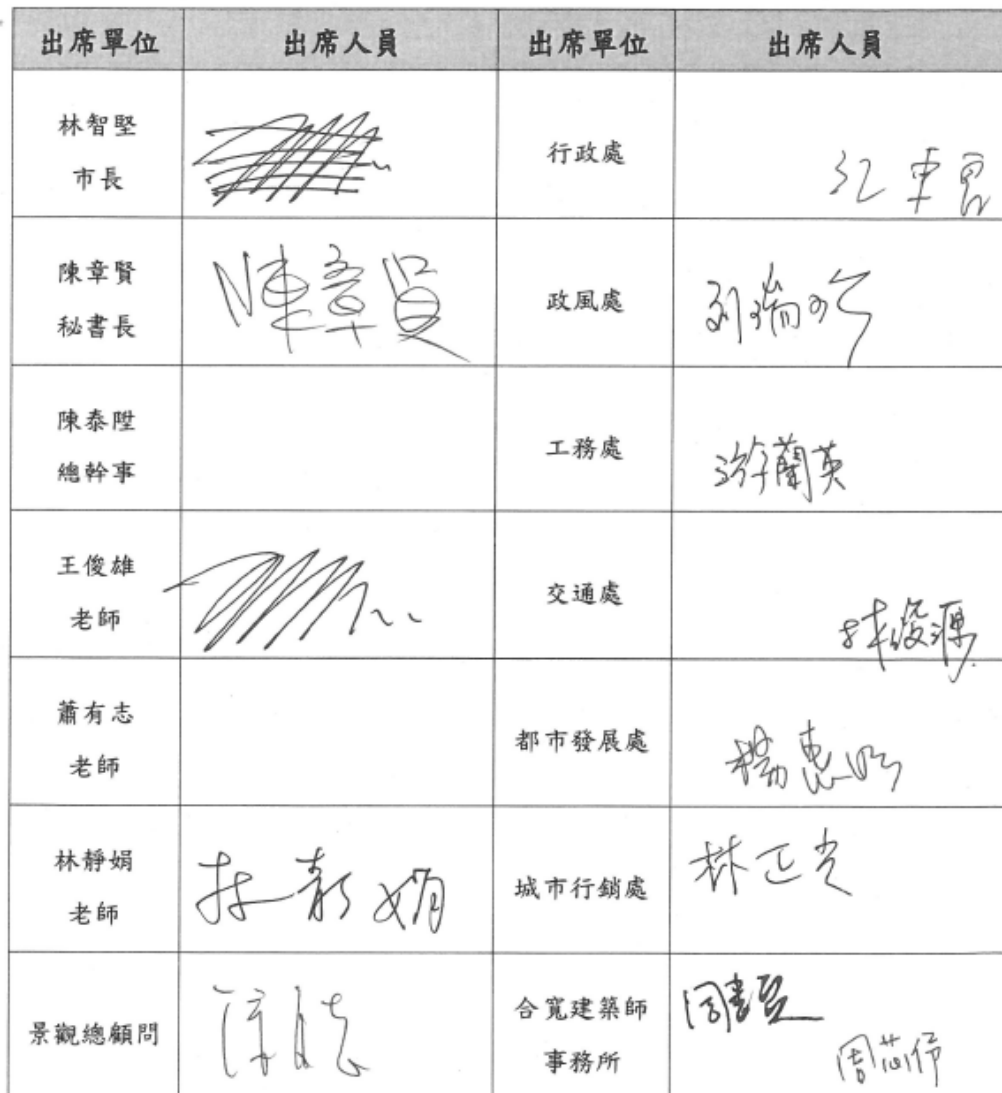 出席單位 出席人員 出席單位 出席人員
林智堅
市長
行政處
陳章賢
秘書長
陳章賢
政風處
陳泰陞
總幹事
工務處
游蘭英
王俊雄
老師
交通處
林俊源
蕭有志
老師
都市發展處
楊惠
林靜娟
老師
林靜娟
城市行銷處
林正光
景觀總顧問
合寬建築師
事務所